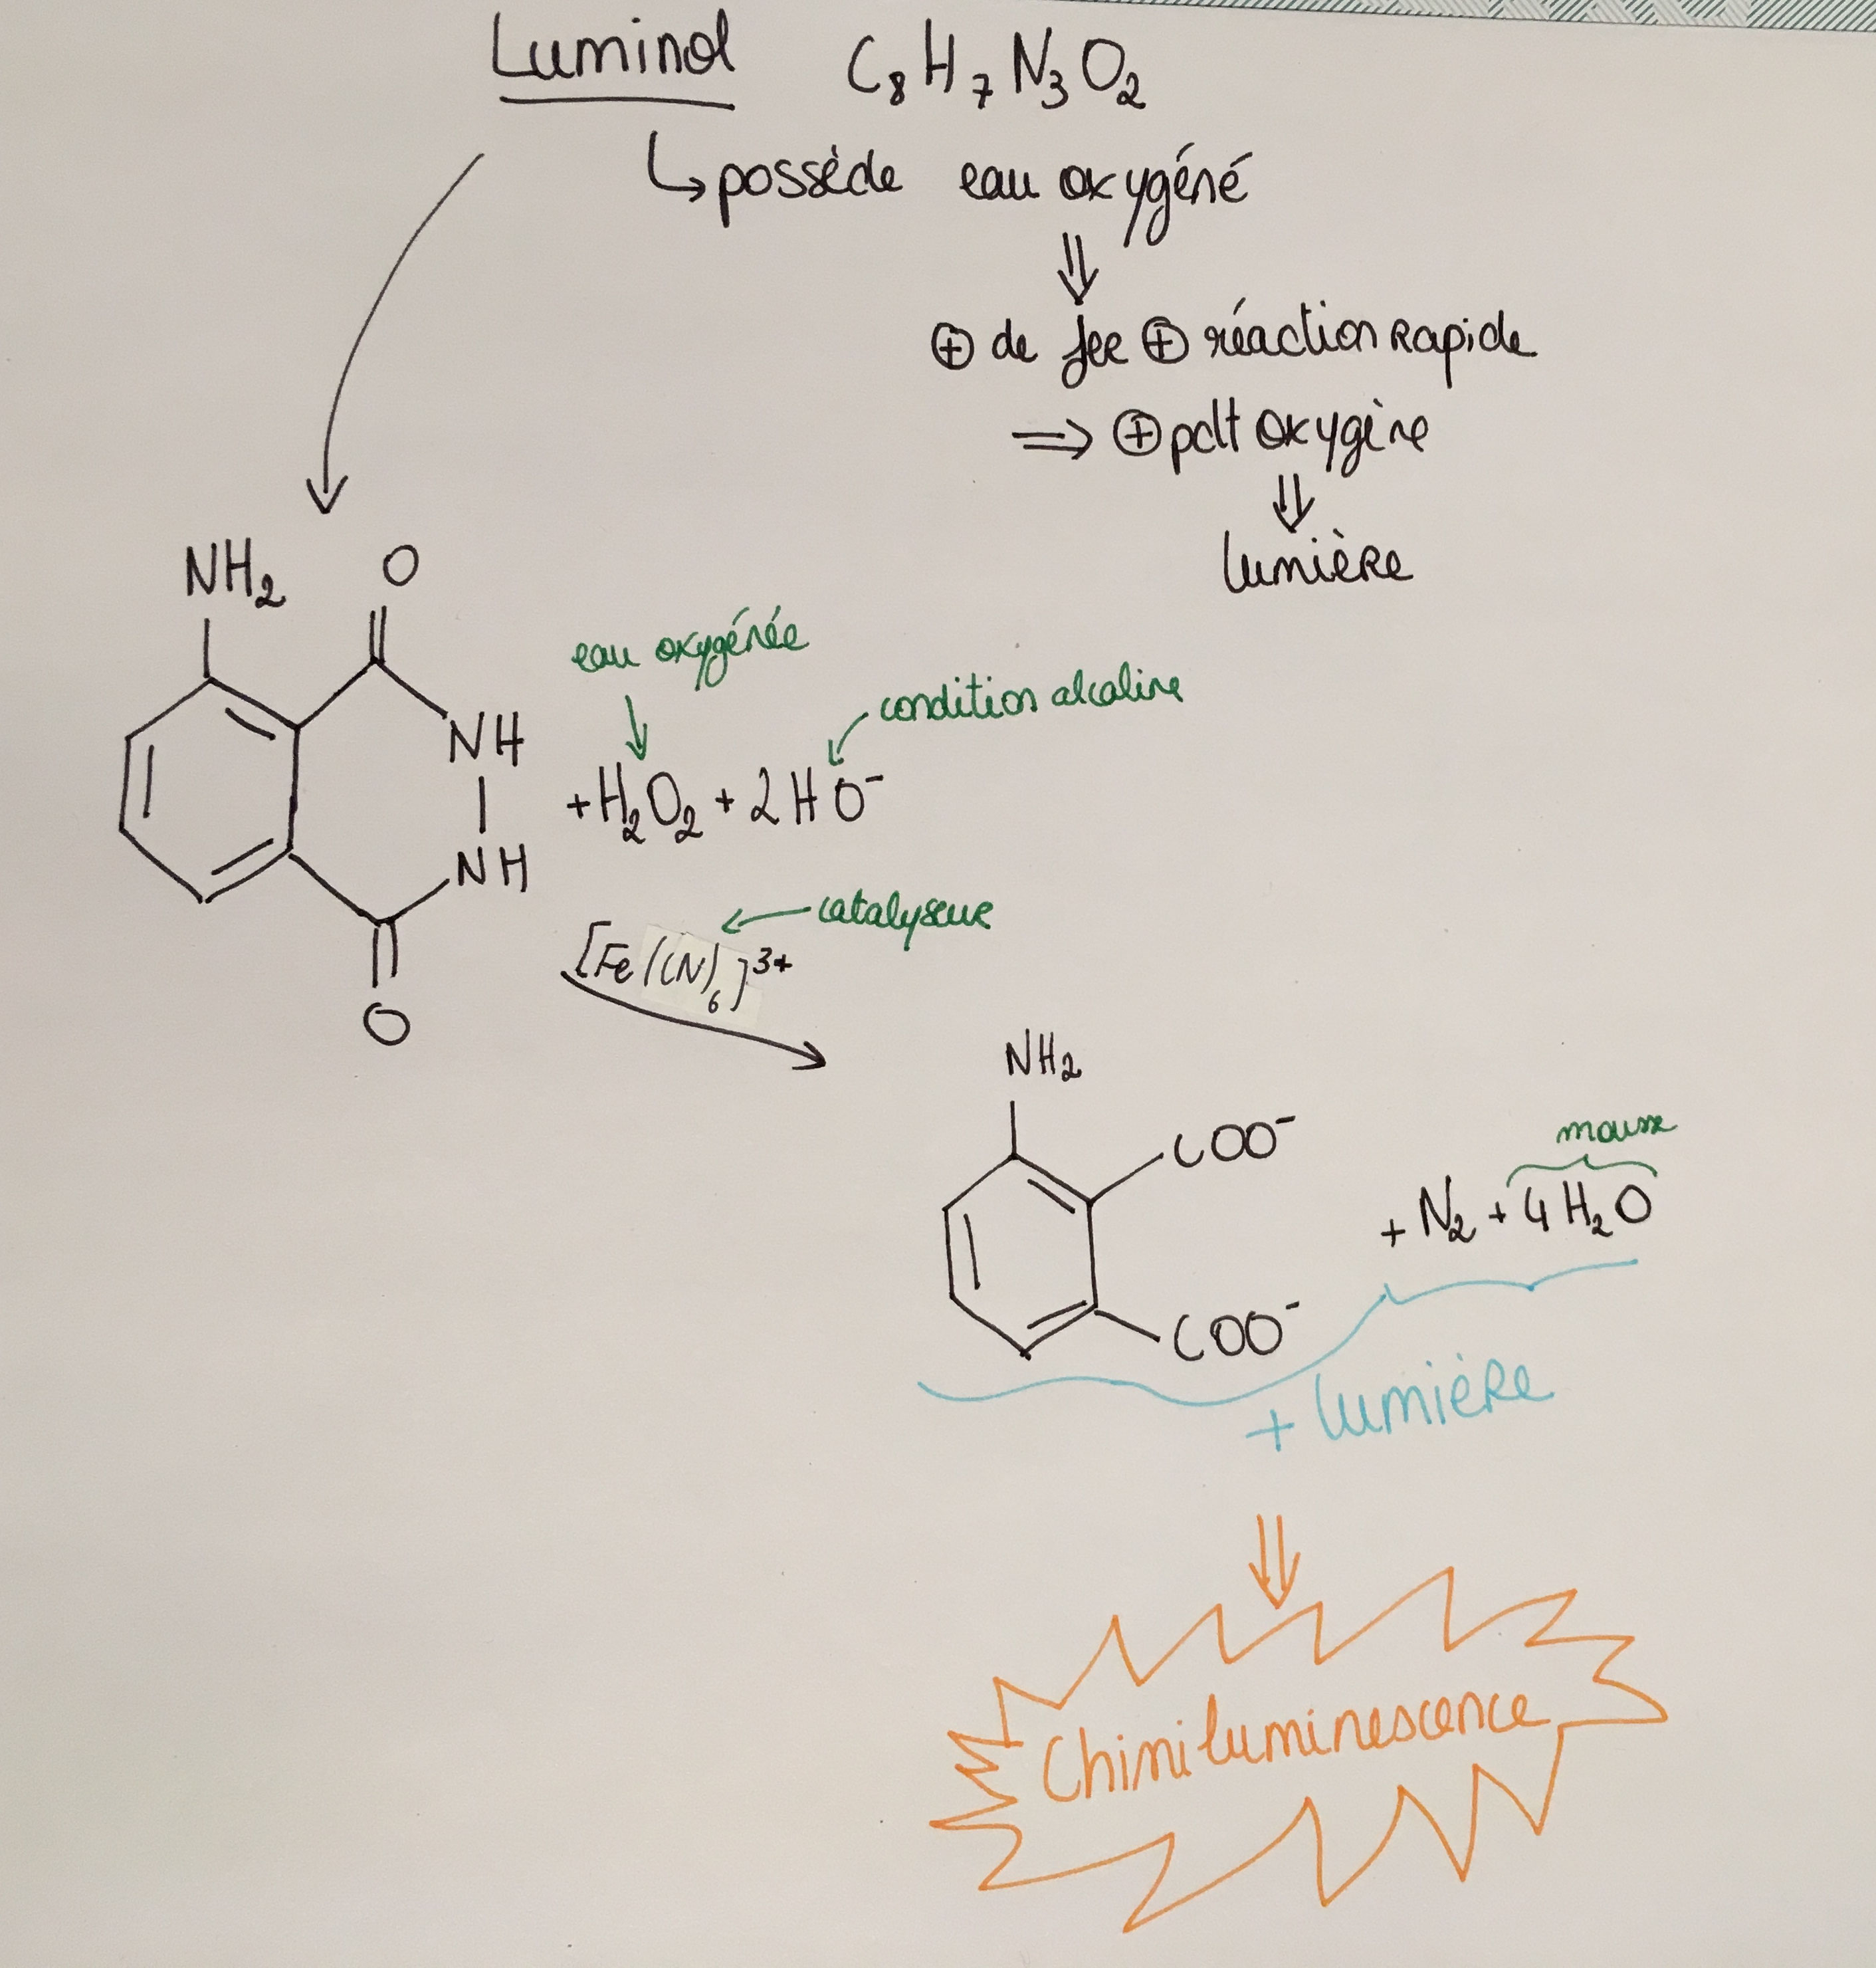 Luminol C₈H₇N₃O₂
↳ possède eau oxygéné
⇓
⊕ de fer ⊕ réaction Rapide
⇒ ⊕ pdt oxygène
⇓
lumière
NH₂ O
eau oxygénée
condition alcaline
NH
+ H₂O₂ + 2HO⁻
NH
catalyseur
[Fe(CN)₆]³⁺
O
NH₂
COO⁻
mousse
+ N₂ + 4H₂O
COO⁻
+ lumière
⇓
Chimiluminescence